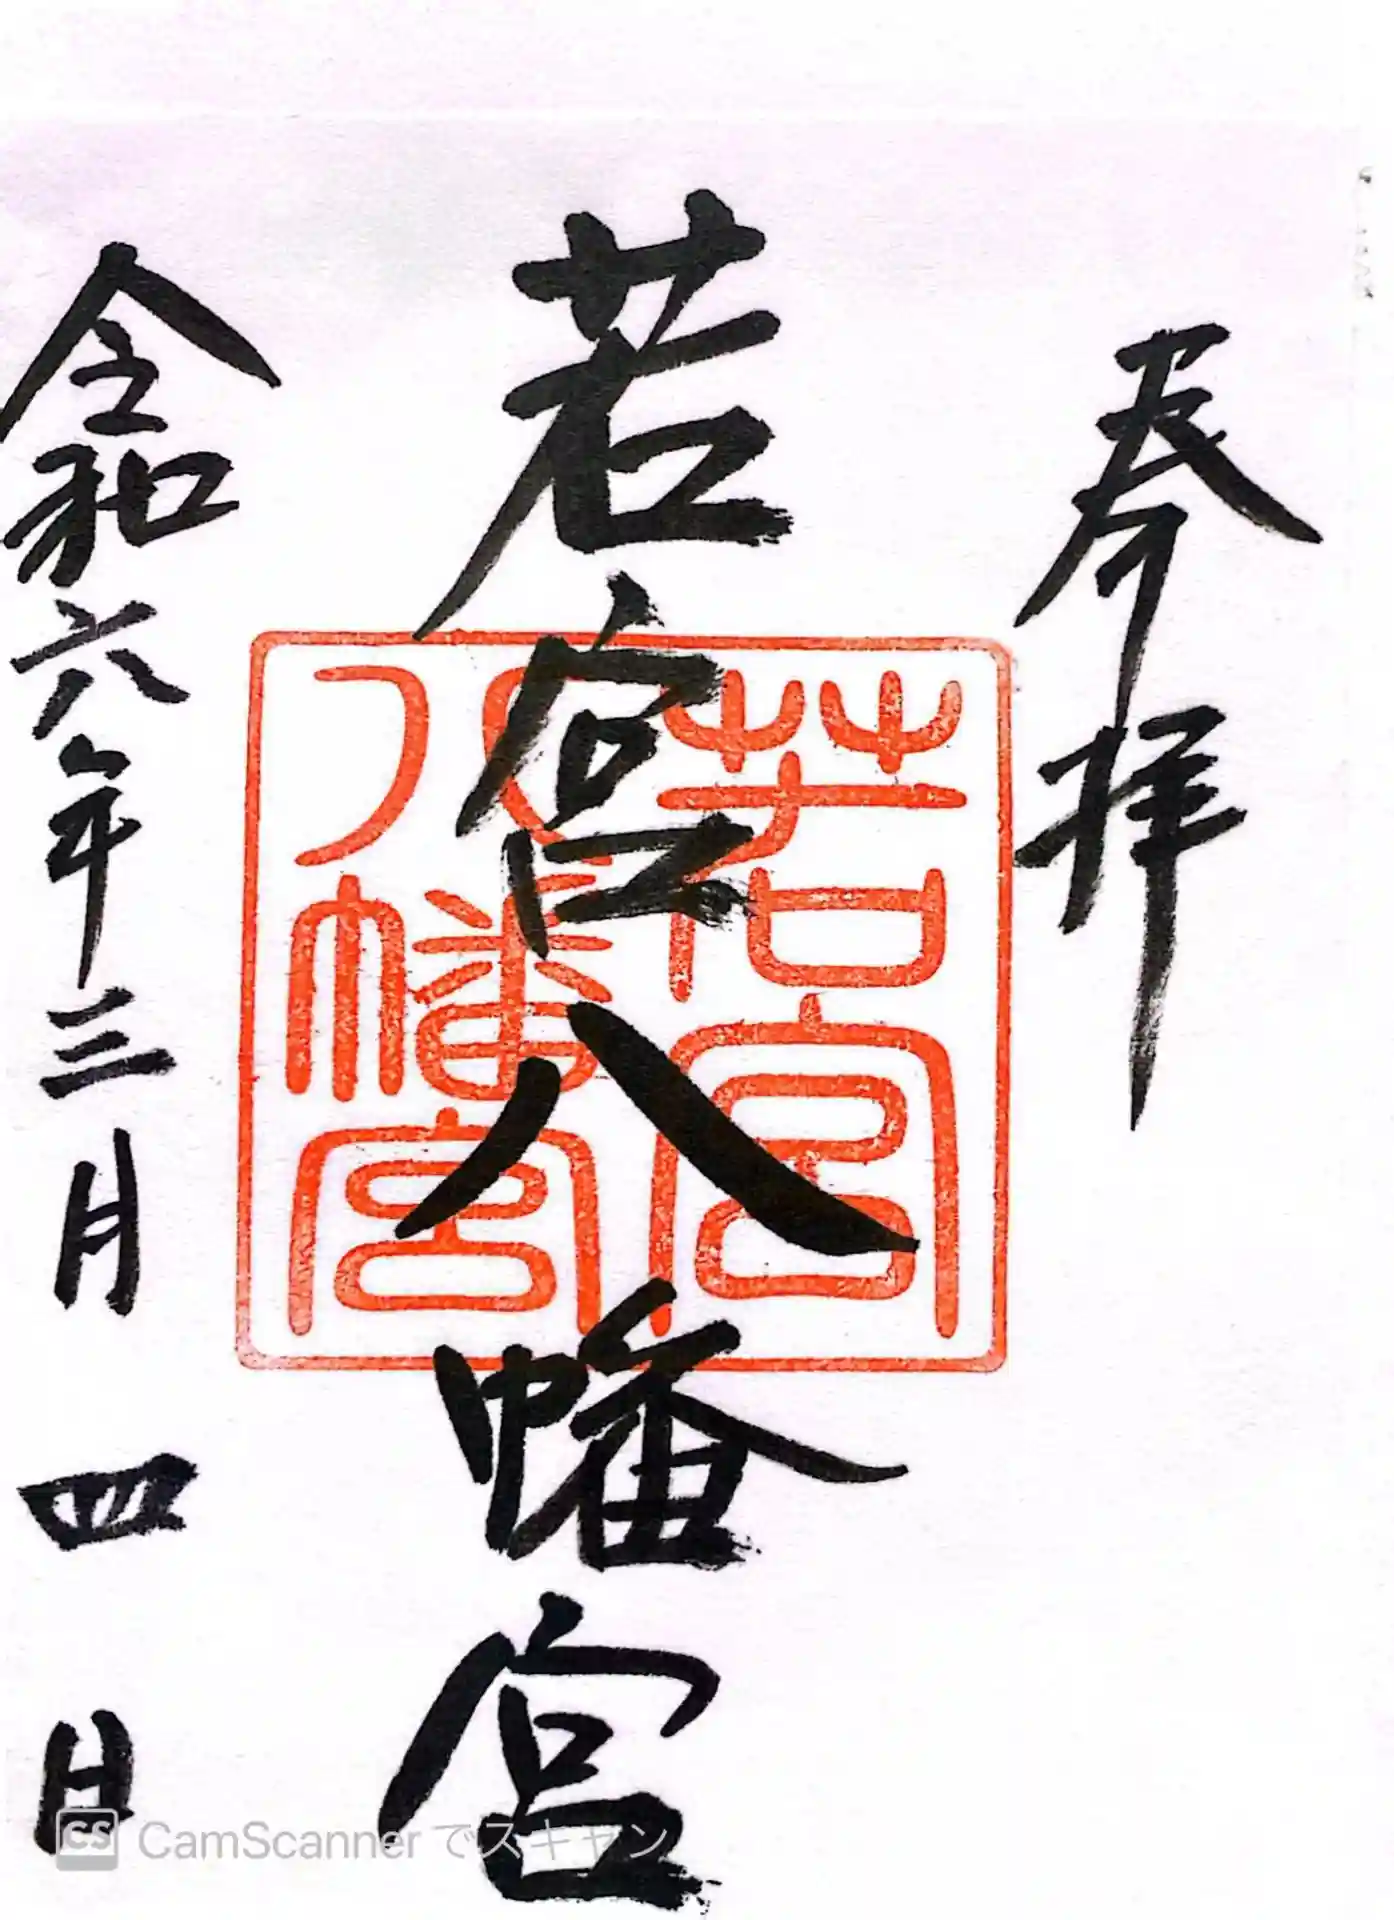 奉拝
若宮八幡宮
若宮
八幡宮
令和六年三月四日
CS CamScanner でスキャン